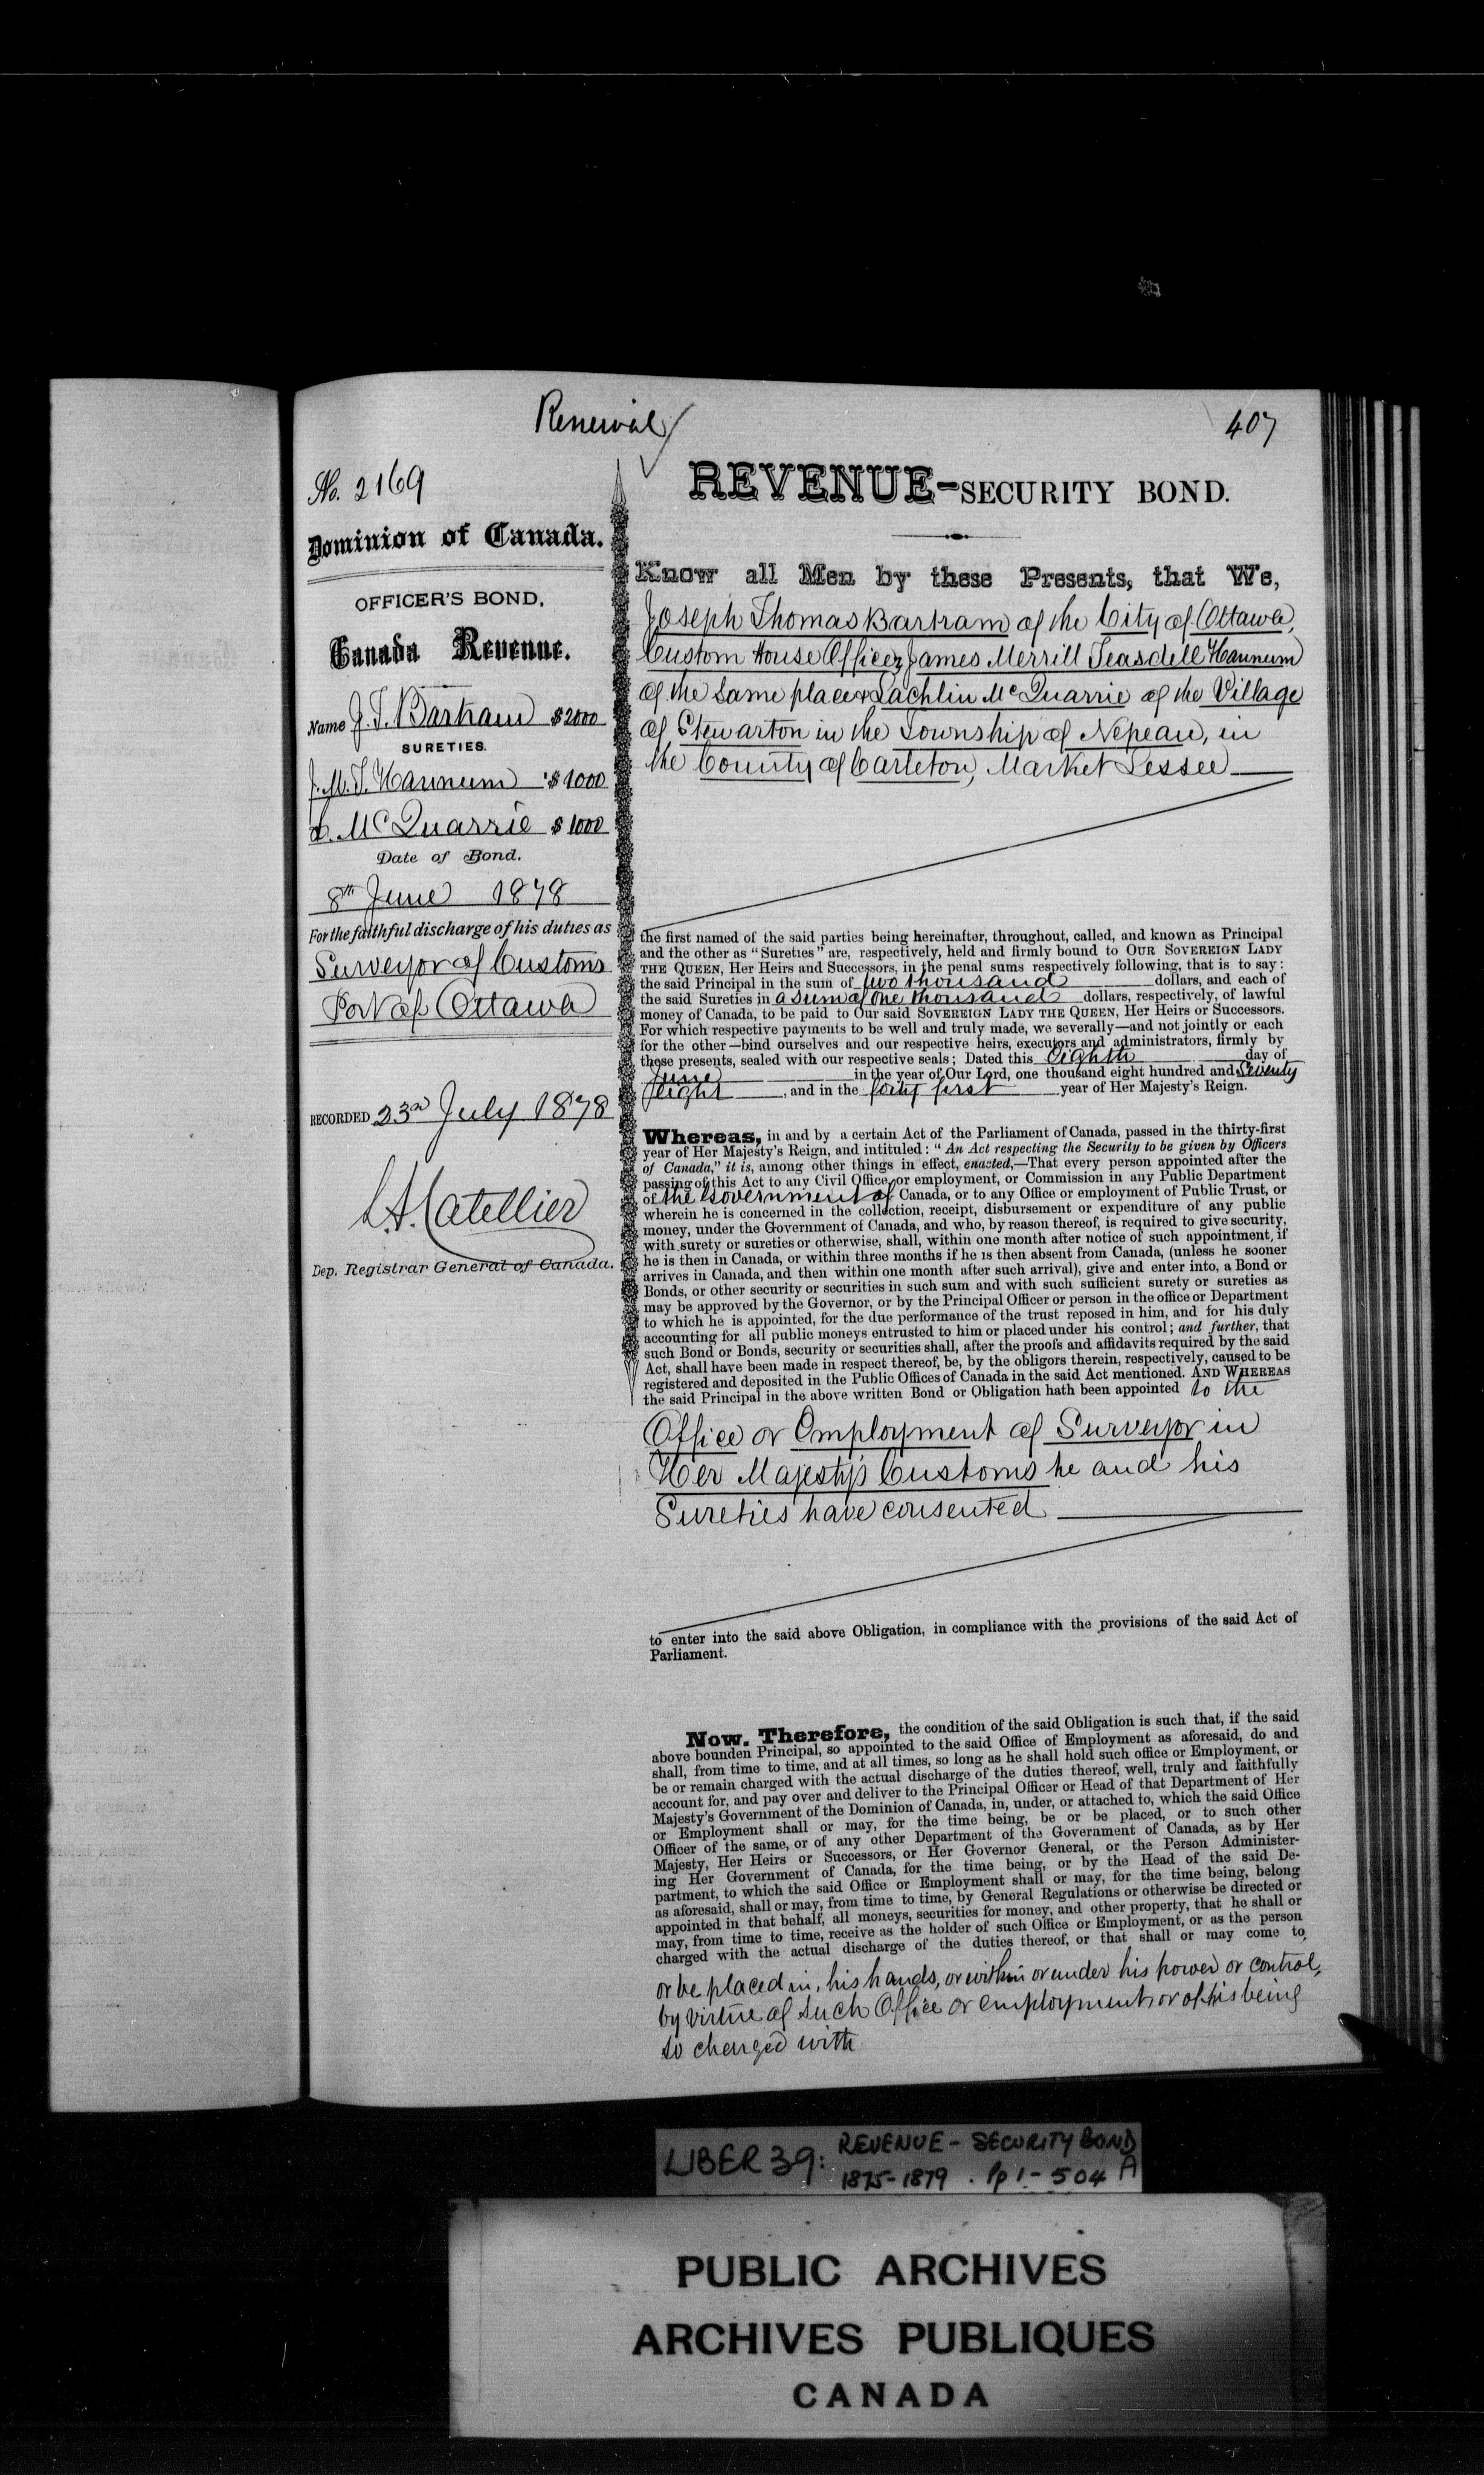 Renewal
407
No. 2169
Dominion of Canada.
OFFICER'S BOND,
Canada Revenue.
Name J. T. Bartram $2000
SURETIES.
J. M. T. Hannum $1000
L. McQuarrie $1000
Date of Bond.
8th June 1878
For the faithful discharge of his duties as
Surveyor of Customs
Port of Ottawa
RECORDED 23rd July 1878
Dep. Registrar General of Canada.
REVENUE-SECURITY BOND.
Know all Men by these Presents, that We,
Joseph Thomas Bartram of the City of Ottawa,
Custom House Officer, James Merrill Teasdell Hannum
of the same place & Lachlin McQuarrie of the Village
of Stewarton in the Township of Nepean, in
the County of Carleton, Market Lessee
the first named of the said parties being hereinafter, throughout, called, and known as Principal
and the other as "Sureties" are, respectively, held and firmly bound to OUR SOVEREIGN LADY
THE QUEEN, Her Heirs and Successors, in the penal sums respectively following, that is to say:
the said Principal in the sum of two thousand dollars, and each of
the said Sureties in a sum of one thousand dollars, respectively, of lawful
money of Canada, to be paid to Our said SOVEREIGN LADY THE QUEEN, Her Heirs or Successors.
For which respective payments to be well and truly made, we severally—and not jointly or each
for the other—bind ourselves and our respective heirs, executors and administrators, firmly by
these presents, sealed with our respective seals; Dated this eighth day of
June in the year of Our Lord, one thousand eight hundred and Seventy
eight, and in the forty first year of Her Majesty's Reign.
Whereas, in and by a certain Act of the Parliament of Canada, passed in the thirty-first
year of Her Majesty's Reign, and intituled: "An Act respecting the Security to be given by Officers
of Canada," it is, among other things in effect, enacted,—That every person appointed after the
passing of this Act to any Civil Office or employment, or Commission in any Public Department
of the Government of Canada, or to any Office or employment of Public Trust, or
wherein he is concerned in the collection, receipt, disbursement or expenditure of any public
money, under the Government of Canada, and who, by reason thereof, is required to give security,
with surety or sureties or otherwise, shall, within one month after notice of such appointment, if
he is then in Canada, or within three months if he is then absent from Canada, (unless he sooner
arrives in Canada, and then within one month after such arrival), give and enter into, a Bond or
Bonds, or other security or securities in such sum and with such sufficient surety or sureties as
may be approved by the Governor, or by the Principal Officer or person in the office or Department
to which he is appointed, for the due performance of the trust reposed in him, and for his duly
accounting for all public moneys entrusted to him or placed under his control; and further, that
such Bond or Bonds, security or securities shall, after the proofs and affidavits required by the said
Act, shall have been made in respect thereof, be, by the obligors therein, respectively, caused to be
registered and deposited in the Public Offices of Canada in the said Act mentioned. AND WHEREAS
the said Principal in the above written Bond or Obligation hath been appointed to the
Office or Employment of Surveyor in
Her Majesty's Customs he and his
Sureties have consented
to enter into the said above Obligation, in compliance with the provisions of the said Act of
Parliament.
Now. Therefore, the condition of the said Obligation is such that, if the said
above bounden Principal, so appointed to the said Office of Employment as aforesaid, do and
shall, from time to time, and at all times, so long as he shall hold such office or Employment, or
be or remain charged with the actual discharge of the duties thereof, well, truly and faithfully
account for, and pay over and deliver to the Principal Officer or Head of that Department of Her
Majesty's Government of the Dominion of Canada, in, under, or attached to, which the said Office
or Employment shall or may, for the time being, be or be placed, or to such other
Officer of the same, or of any other Department of the Government of Canada, as by Her
Majesty, Her Heirs or Successors, or Her Governor General, or the Person Administer-
ing Her Government of Canada, for the time being, or by the Head of the said De-
partment, to which the said Office or Employment shall or may, for the time being, belong
as aforesaid, shall or may, from time to time, by General Regulations or otherwise be directed or
appointed in that behalf, all moneys, securities for money, and other property, that he shall or
may, from time to time, receive as the holder of such Office or Employment, or as the person
charged with the actual discharge of the duties thereof, or that shall or may come to,
or be placed in, his hands, or within or under his power or control,
by virtue of such Office or employment, or of his being
so charged with
LIBER 39: REVENUE - SECURITY BOND
1875-1879 . Pp 1-504 A
PUBLIC ARCHIVES
ARCHIVES PUBLIQUES
CANADA